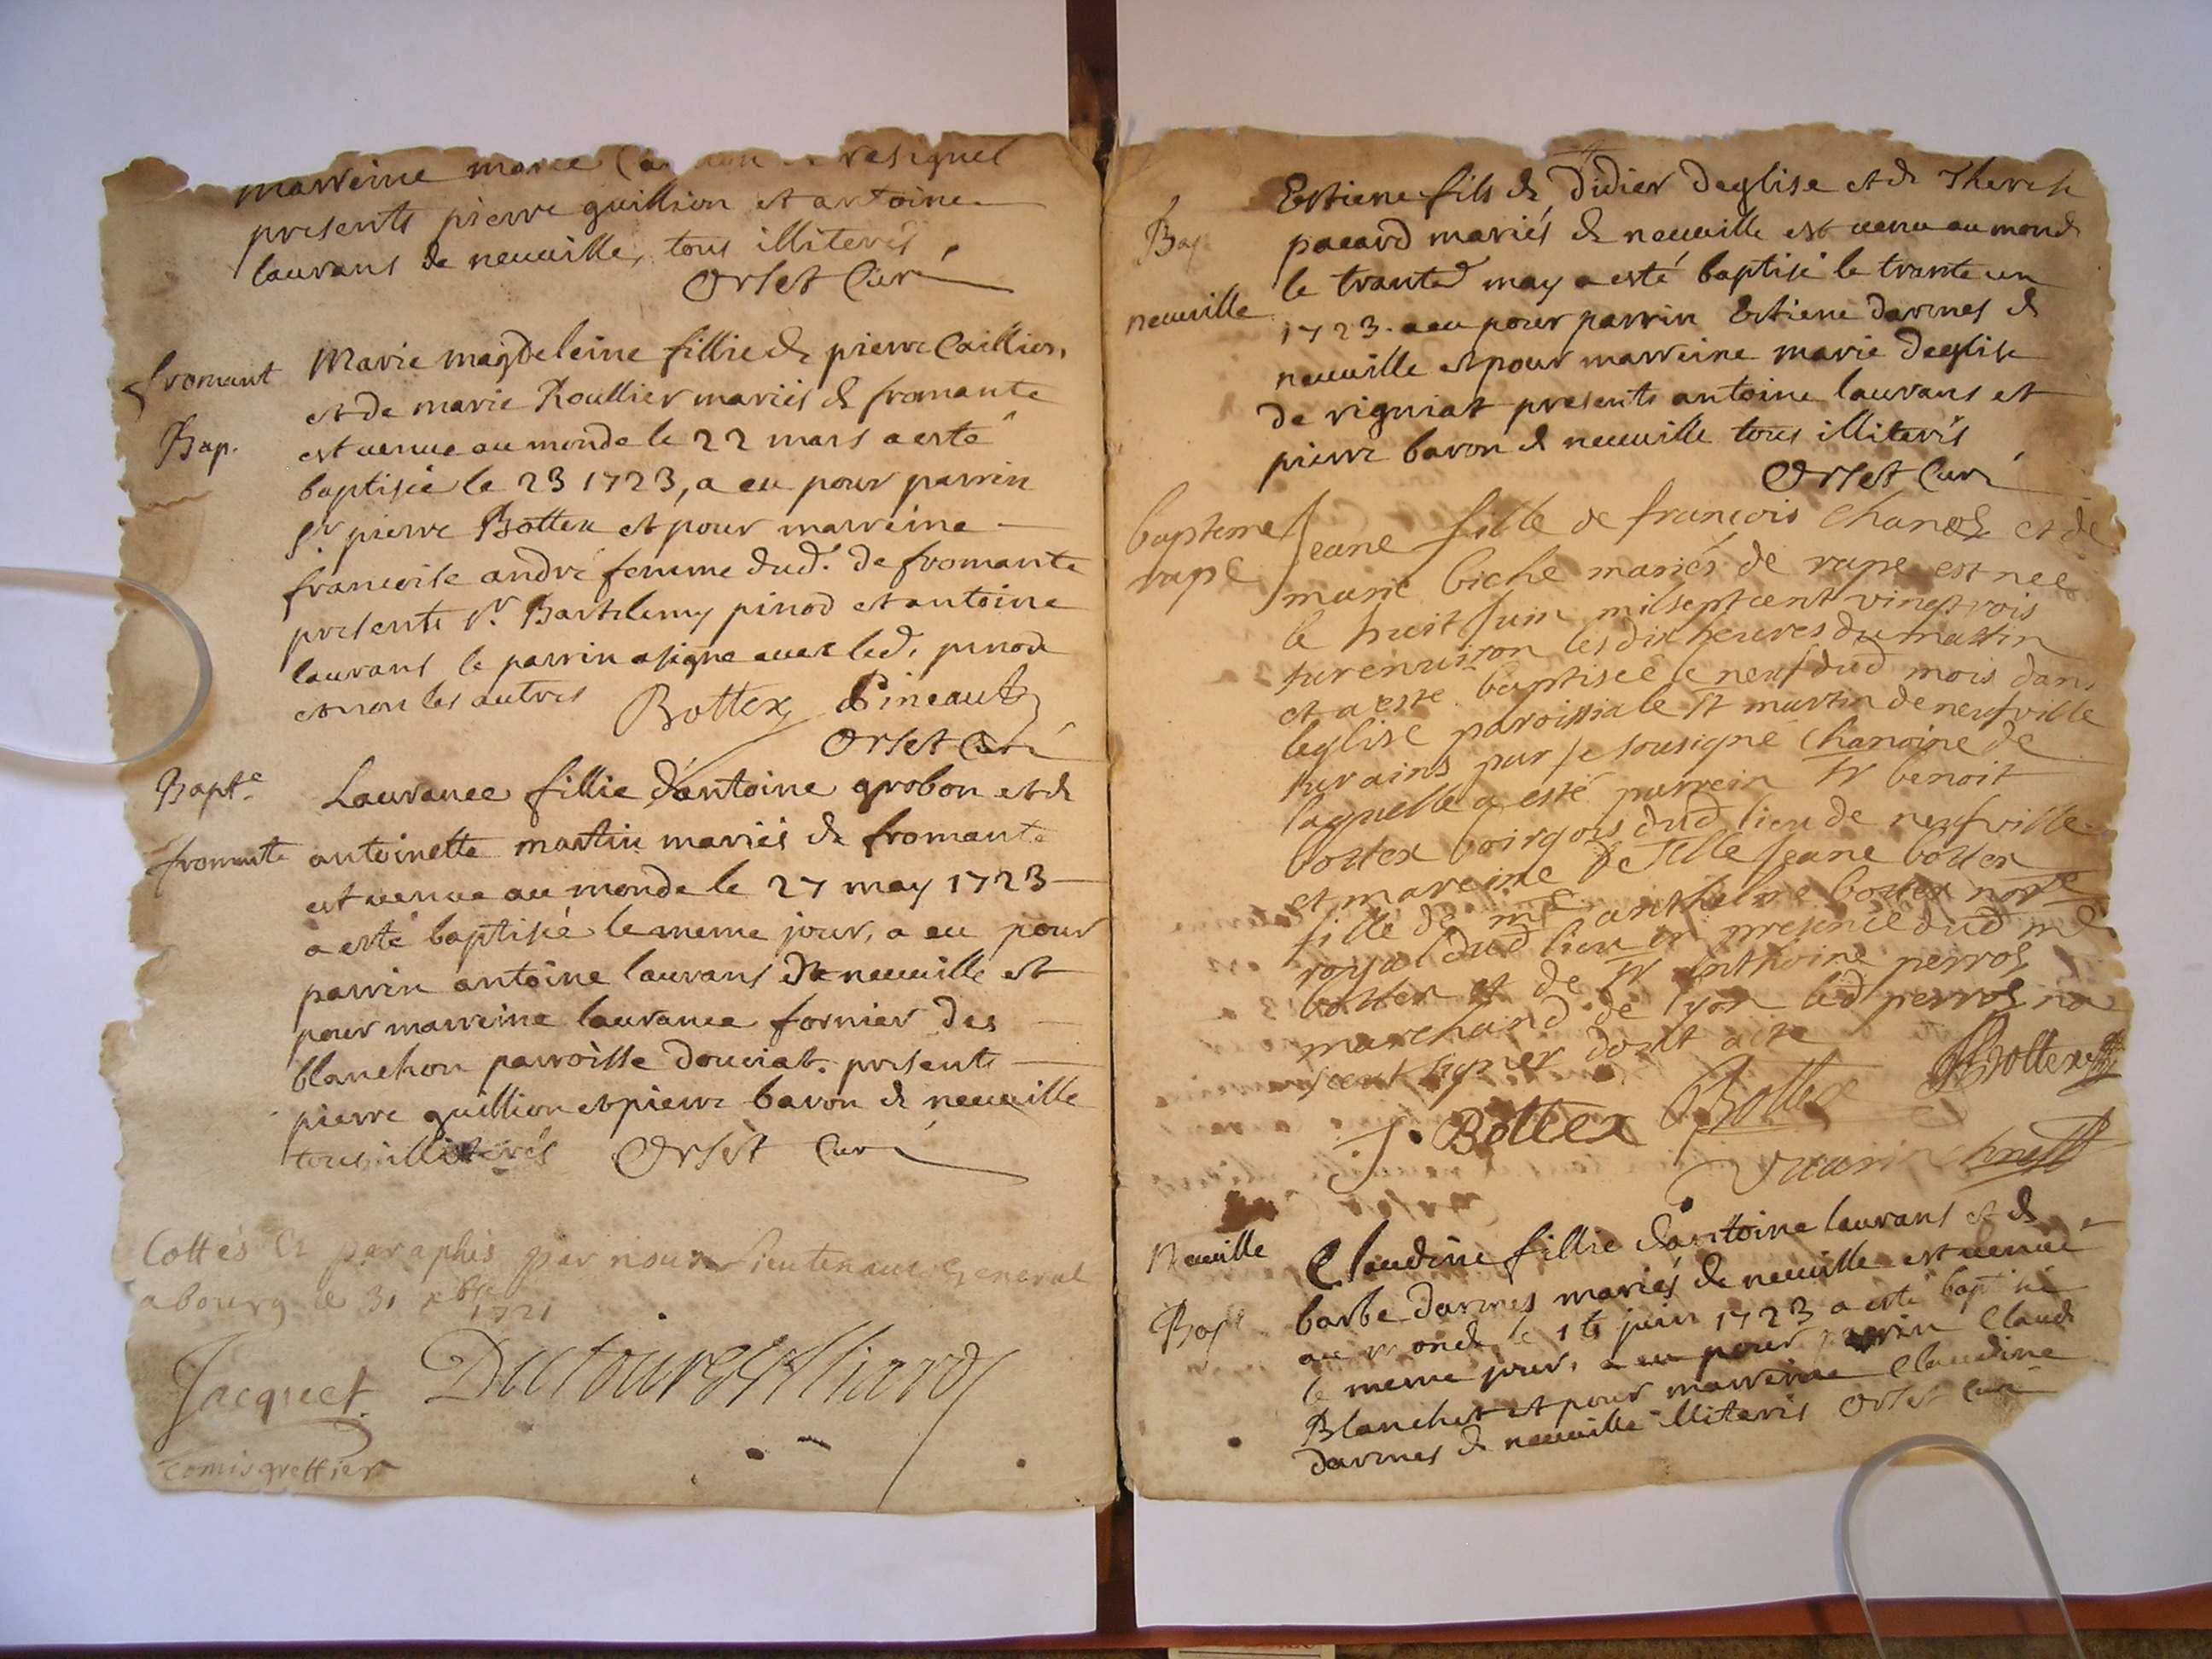 marreine marie
presents pierre guillion et antoine
lauvans de neuuille, tous illiterés
Orset Curé
fromant
Bap.
Marie magdeleine fillie de pierre Caillier,
et de marie Roullier mariés de fromante
est uenue au monde le 22 mars a esté
baptisée le 23 1723, a eu pour parrin
Sr pierre Bottex et pour marreine
francoise andré femme dud. de fromante
presents Sr. Bartelemy pinod et antoine
lauvans le parrin a signé auec led. pinod
et non les autres Bottex Pineaud
Orset Curé
Bapte
fromante
Lauvance fillie d'antoine grobon et de
antoinette martin mariés de fromante
est uenue au monde le 27 may 1723
a esté baptisée le meme jour, a eu pour
parrin antoine lauvans de neuuille et
pour marreine lauvance fornier des
blanchon parroisse douriat. presents
pierre guillion et pierre bavon de neuuille
tous illiterés Orset Curé
Cottés et paraphés par nous Lieutenant General
a bourg le 31 xbre
1721
Jacquet
comis greffier
Bap
neuuille
Estiene fils de Didier Deglise et de Therese
pacard mariés de neuuille est uenu au monde
le trante may a esté baptisé le trante un
1723. a eu pour parrin Estiene darmes de
neuuille et pour marreine marie Deglise
de rigniat presents antoine lauvans et
pierre bavon de neuuille tous illiterés
Orset Curé
bapteme
rape
Jeane fille de francois Chanel et de
marie biche mariés de rape est nee
le huit Juin mil sept cent vingt trois
sur enuiron les dix heures du mattin
et a esté baptiseé le neuf dud mois dans
leglise paroissiale St martin de neufville
sur ains par Je sousigné chanoine de
laquelle a esté parrein Sr benoit
bottex boirgois dud lieu de neufville
et mareine delle Jeane bottex
fille de me anthelme bottex nore
royal dud lieu en presence dud me
bottex et de Sr Anthoine perrod
marchand de lyon led perrod na
sceut signer dont acte
J. Bottex Bottex Bottex
Neuuille
Bap
Claudine fillie d'antoine lauvans et de
barbe darmes mariés de neuuille est uenue
au monde le juin 1723 a esté baptisée
le meme jour, a eu pour parrin Claude
Blanchet et pour marreine Claudine
darmes de neuuille illiterés Orset Curé